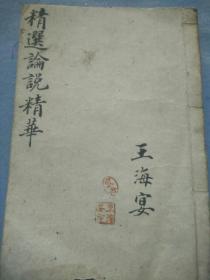 精選論説精華
王海宴